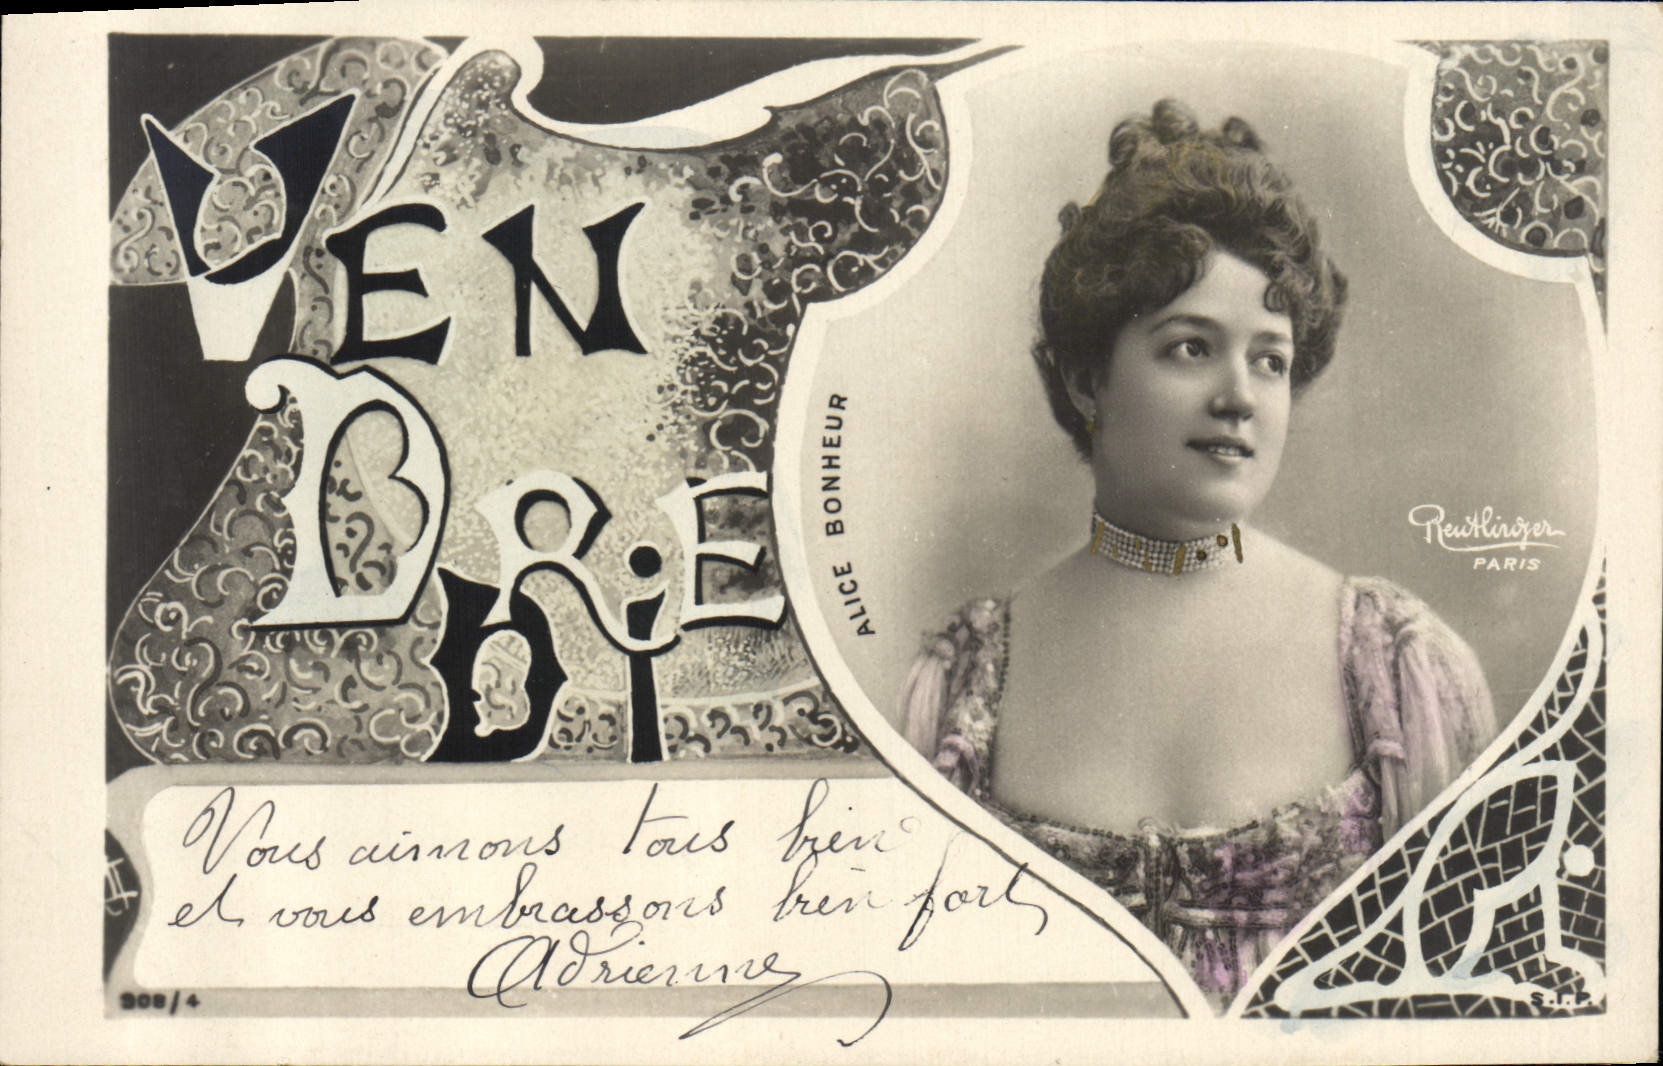 VENDREDI
ALICE BONHEUR
Reutlinger
PARIS
Vous aimons tous bien
et vous embrassons bien fort
Adrienne
908/4
S.I.P.